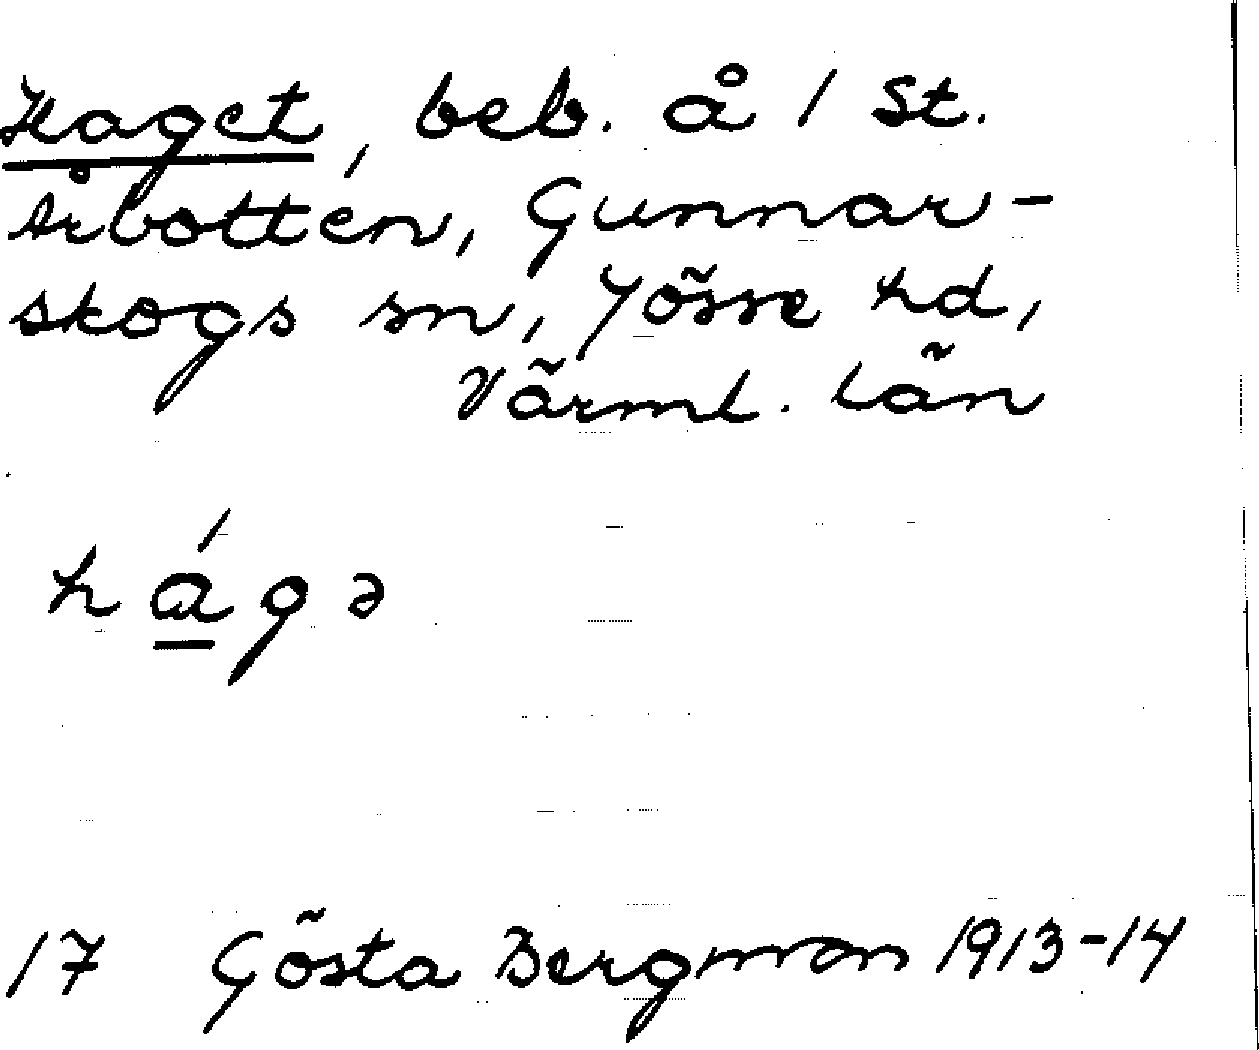 Haget, beb. å 1 St.
Årbotten, Gunnar-
skogs sn, Jösse hd,
Värml. län
hágə
17 Gösta Bergman 1913-14